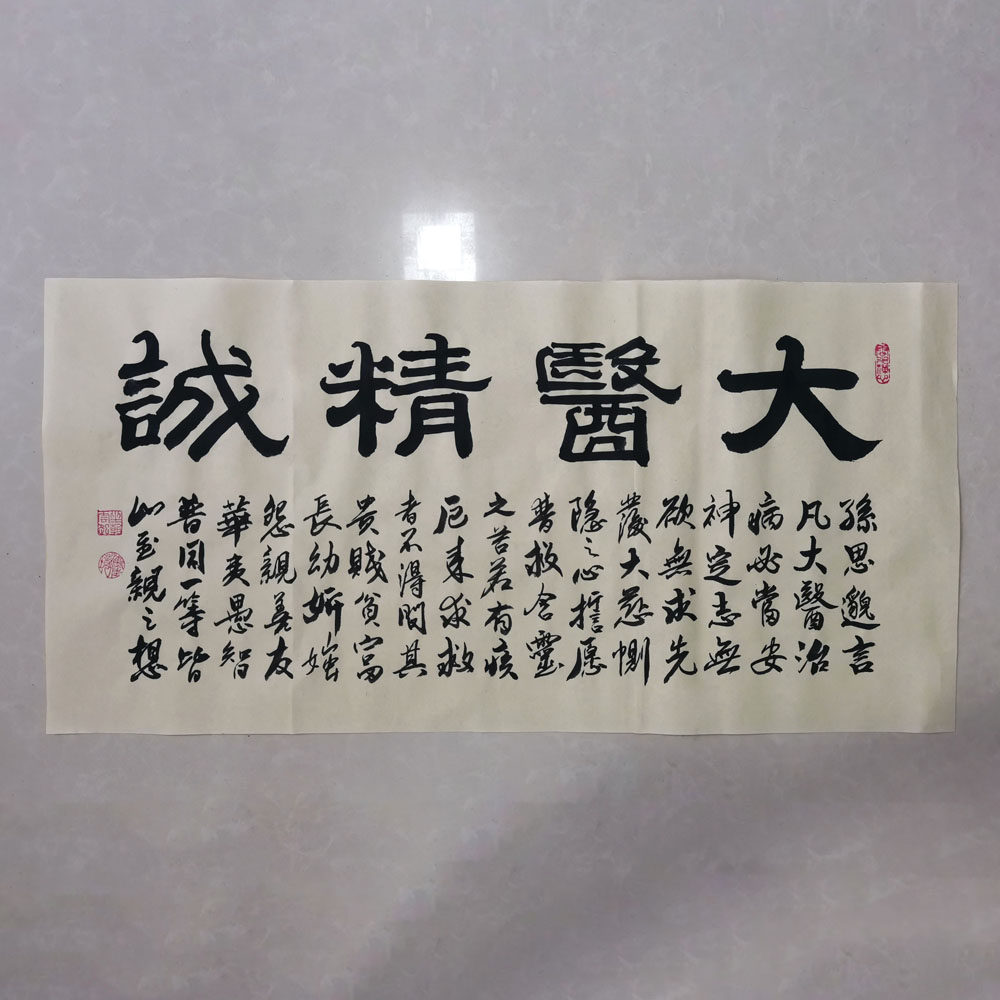 大醫精誠
孫思邈言
凡大醫治
病必當安
神定志無
欲無求先
發大慈惻
隐之心誓愿
普救含靈
之苦若有疾
厄来求救
者不得問其
貴賤貧富
長幼妍媸
怨親善友
華夷愚智
普同一等皆
如至親之想